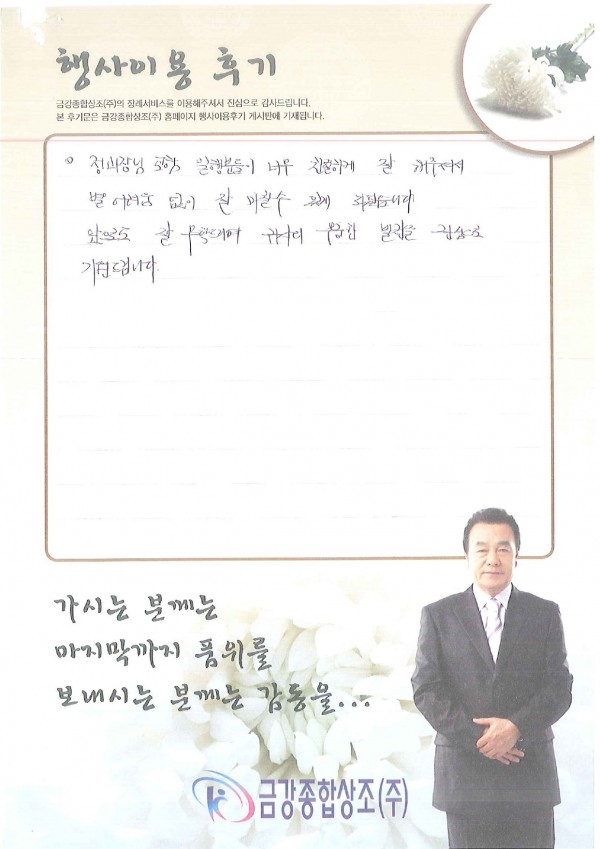 행사이용 후기
금강종합상조(주)의 장례서비스를 이용해주셔서 진심으로 감사드립니다.
본 후기문은 금강종합상조(주) 홈페이지 행사이용후기 게시판에 기재됩니다.
일행분들이 너무 친절하게 잘 해주셔서
별 어려움 없이 잘 치를수 있게 되었습니다
앞으로도 잘 부탁드리며 귀사의 무궁한 발전을 진심으로
기원드립니다.
가시는 분께는
마지막까지 품위를
보내시는 분께는 감동을...
금강종합상조(주)